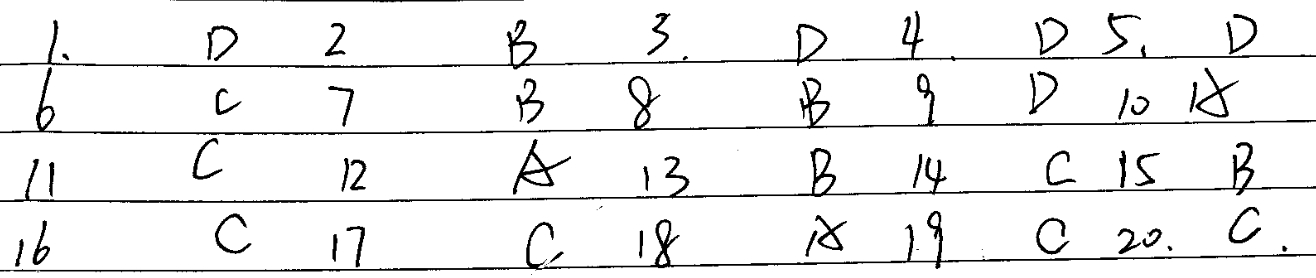 1. D 2 B 3. D 4. D 5. D
6 C 7 B 8 B 9 D 10 A
11 C 12 A 13 B 14 C 15 B
16 C 17 C 18 A 19 C 20. C.